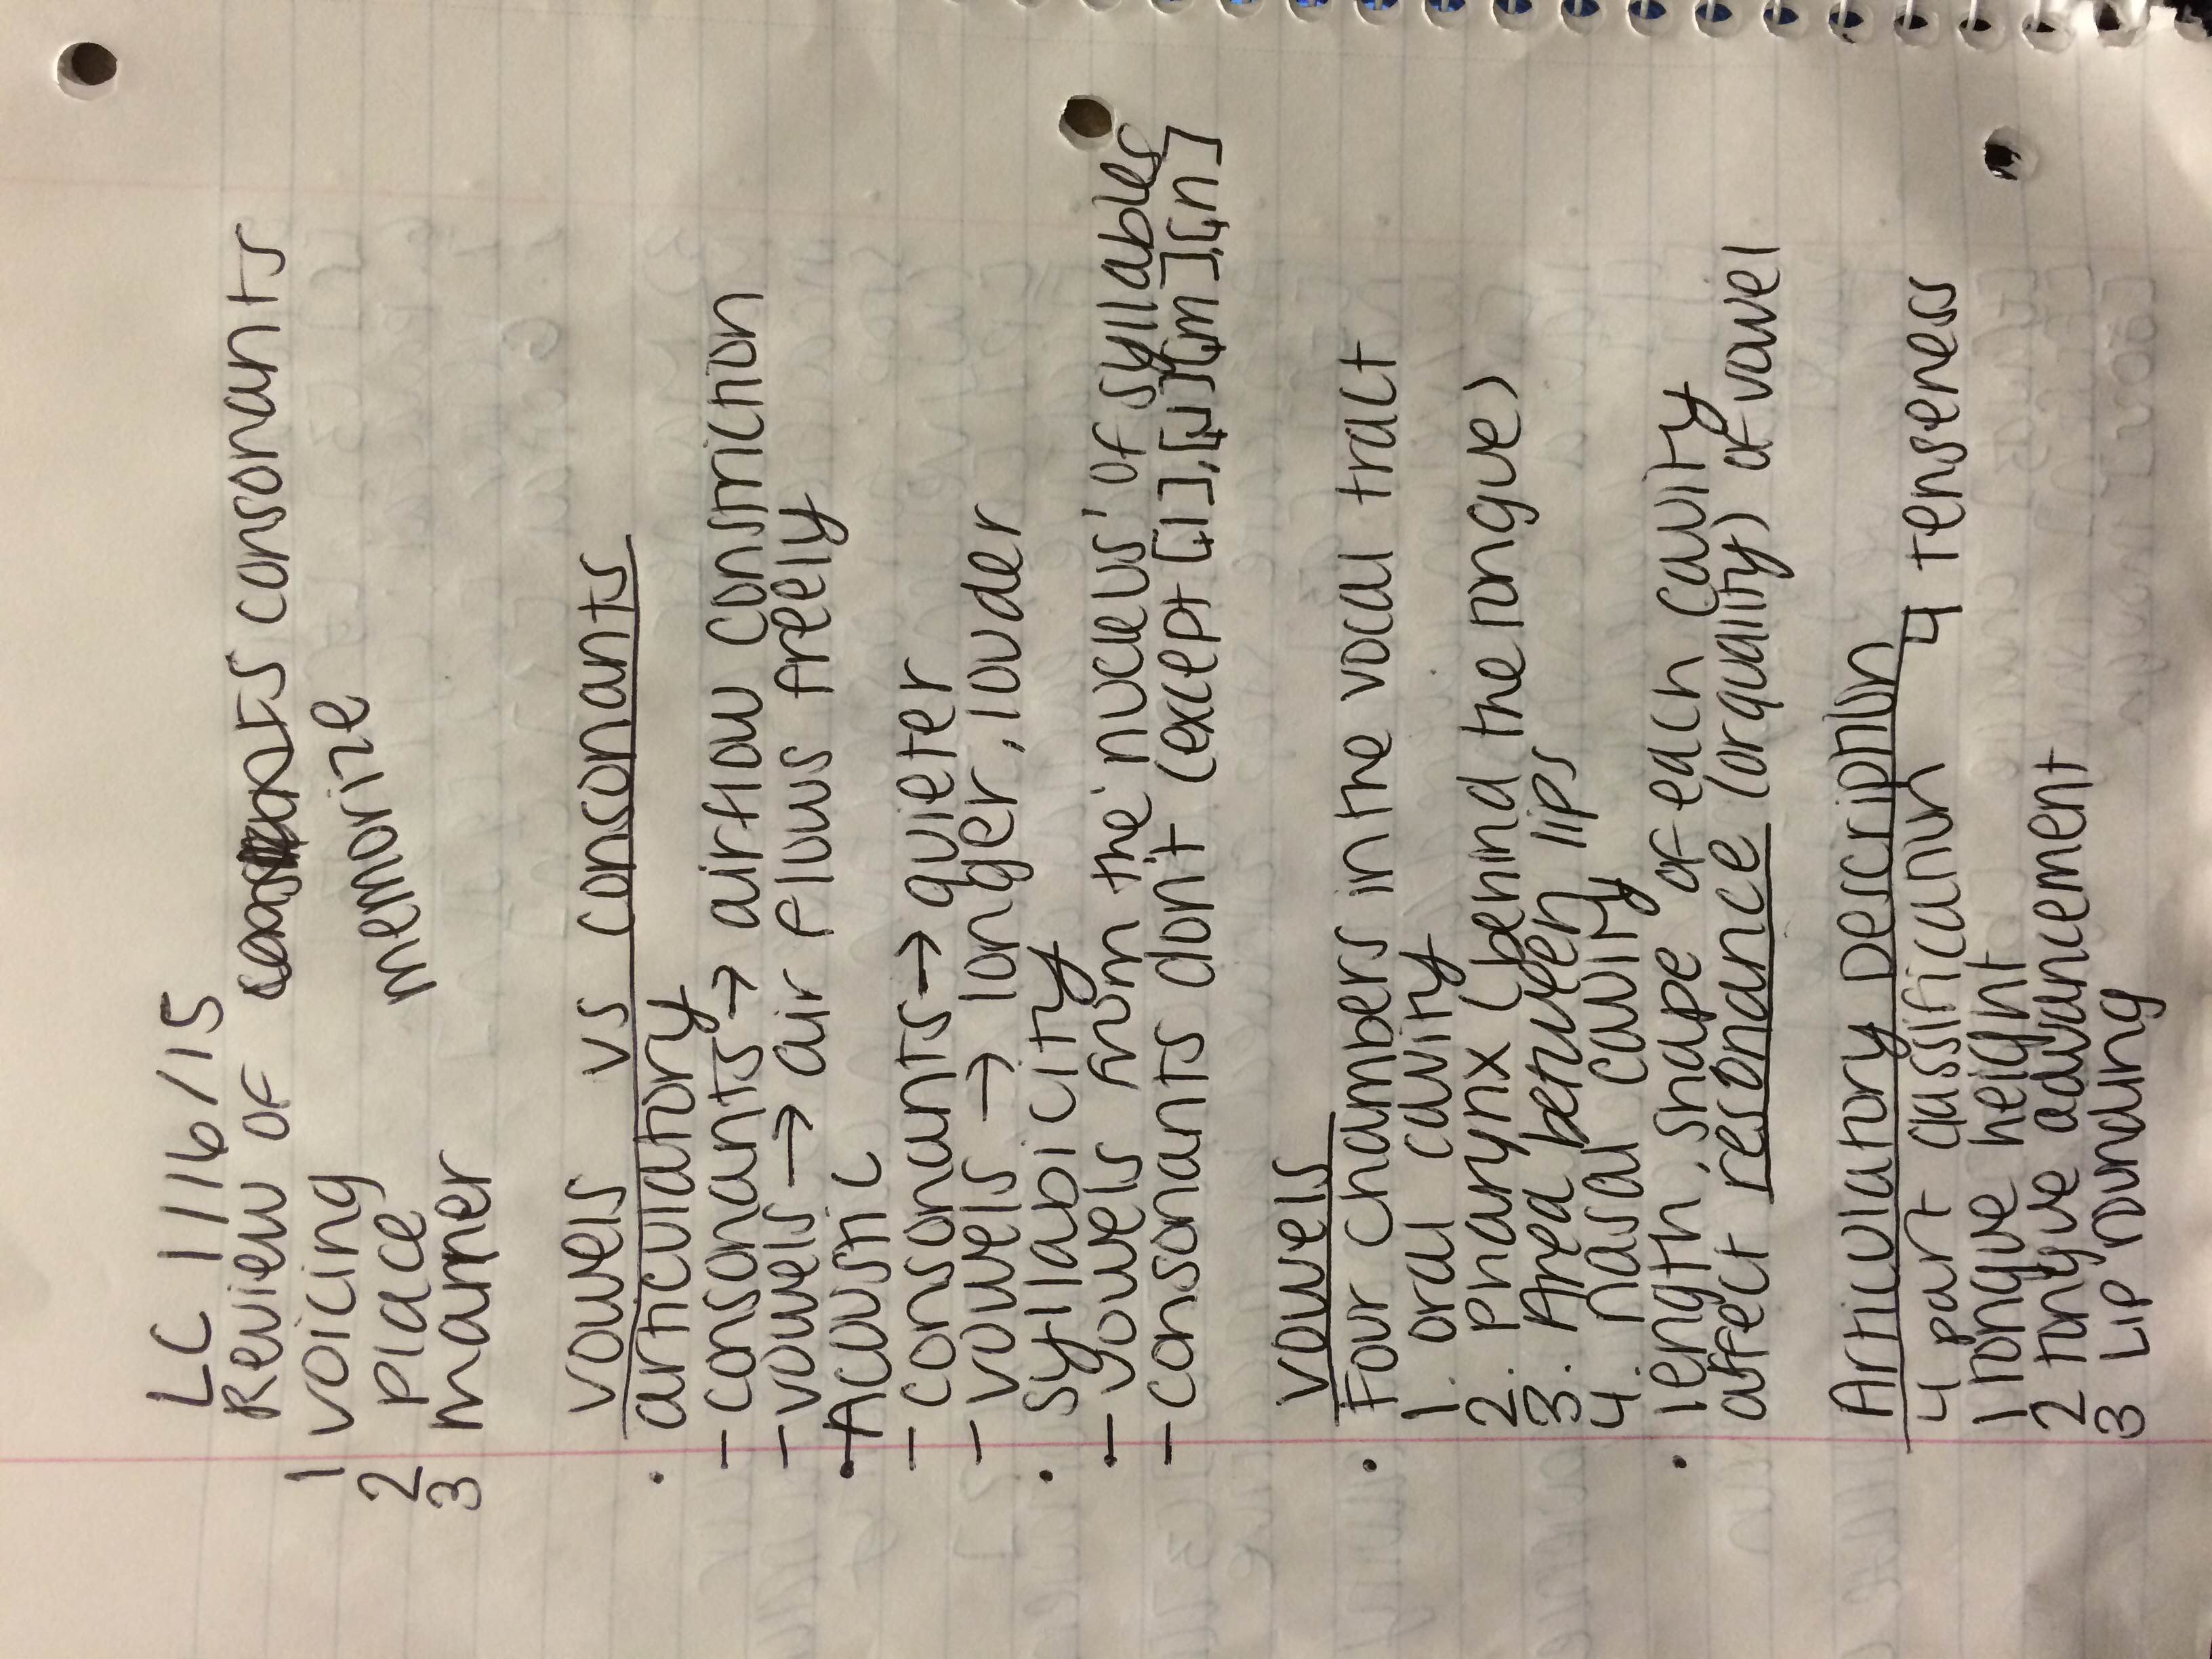 LC 1/16/15
Review of consonants
1 voicing memorize
2 place memorize
3 manner
vowels vs consonants
• articulatory
- consonants → airflow constriction
- vowels → air flows freely
• Acoustic
- consonants → quieter
- vowels → longer, louder
• syllabicity
- vowels from the 'nucleus' of syllables
- consonants don't (except [l̩],[ɹ̩],[m̩],[n̩]
vowels
• Four chambers in the vocal tract
1. oral cavity
2. Pharynx (behind the tongue)
3. Area between lips
4. nasal cavity
• length, shape of each cavity
affect resonance (or quality) of vowel
Articulatory Description
4 part classification 4 tenseness
1 tongue height
2 tongue advancement
3 Lip rounding